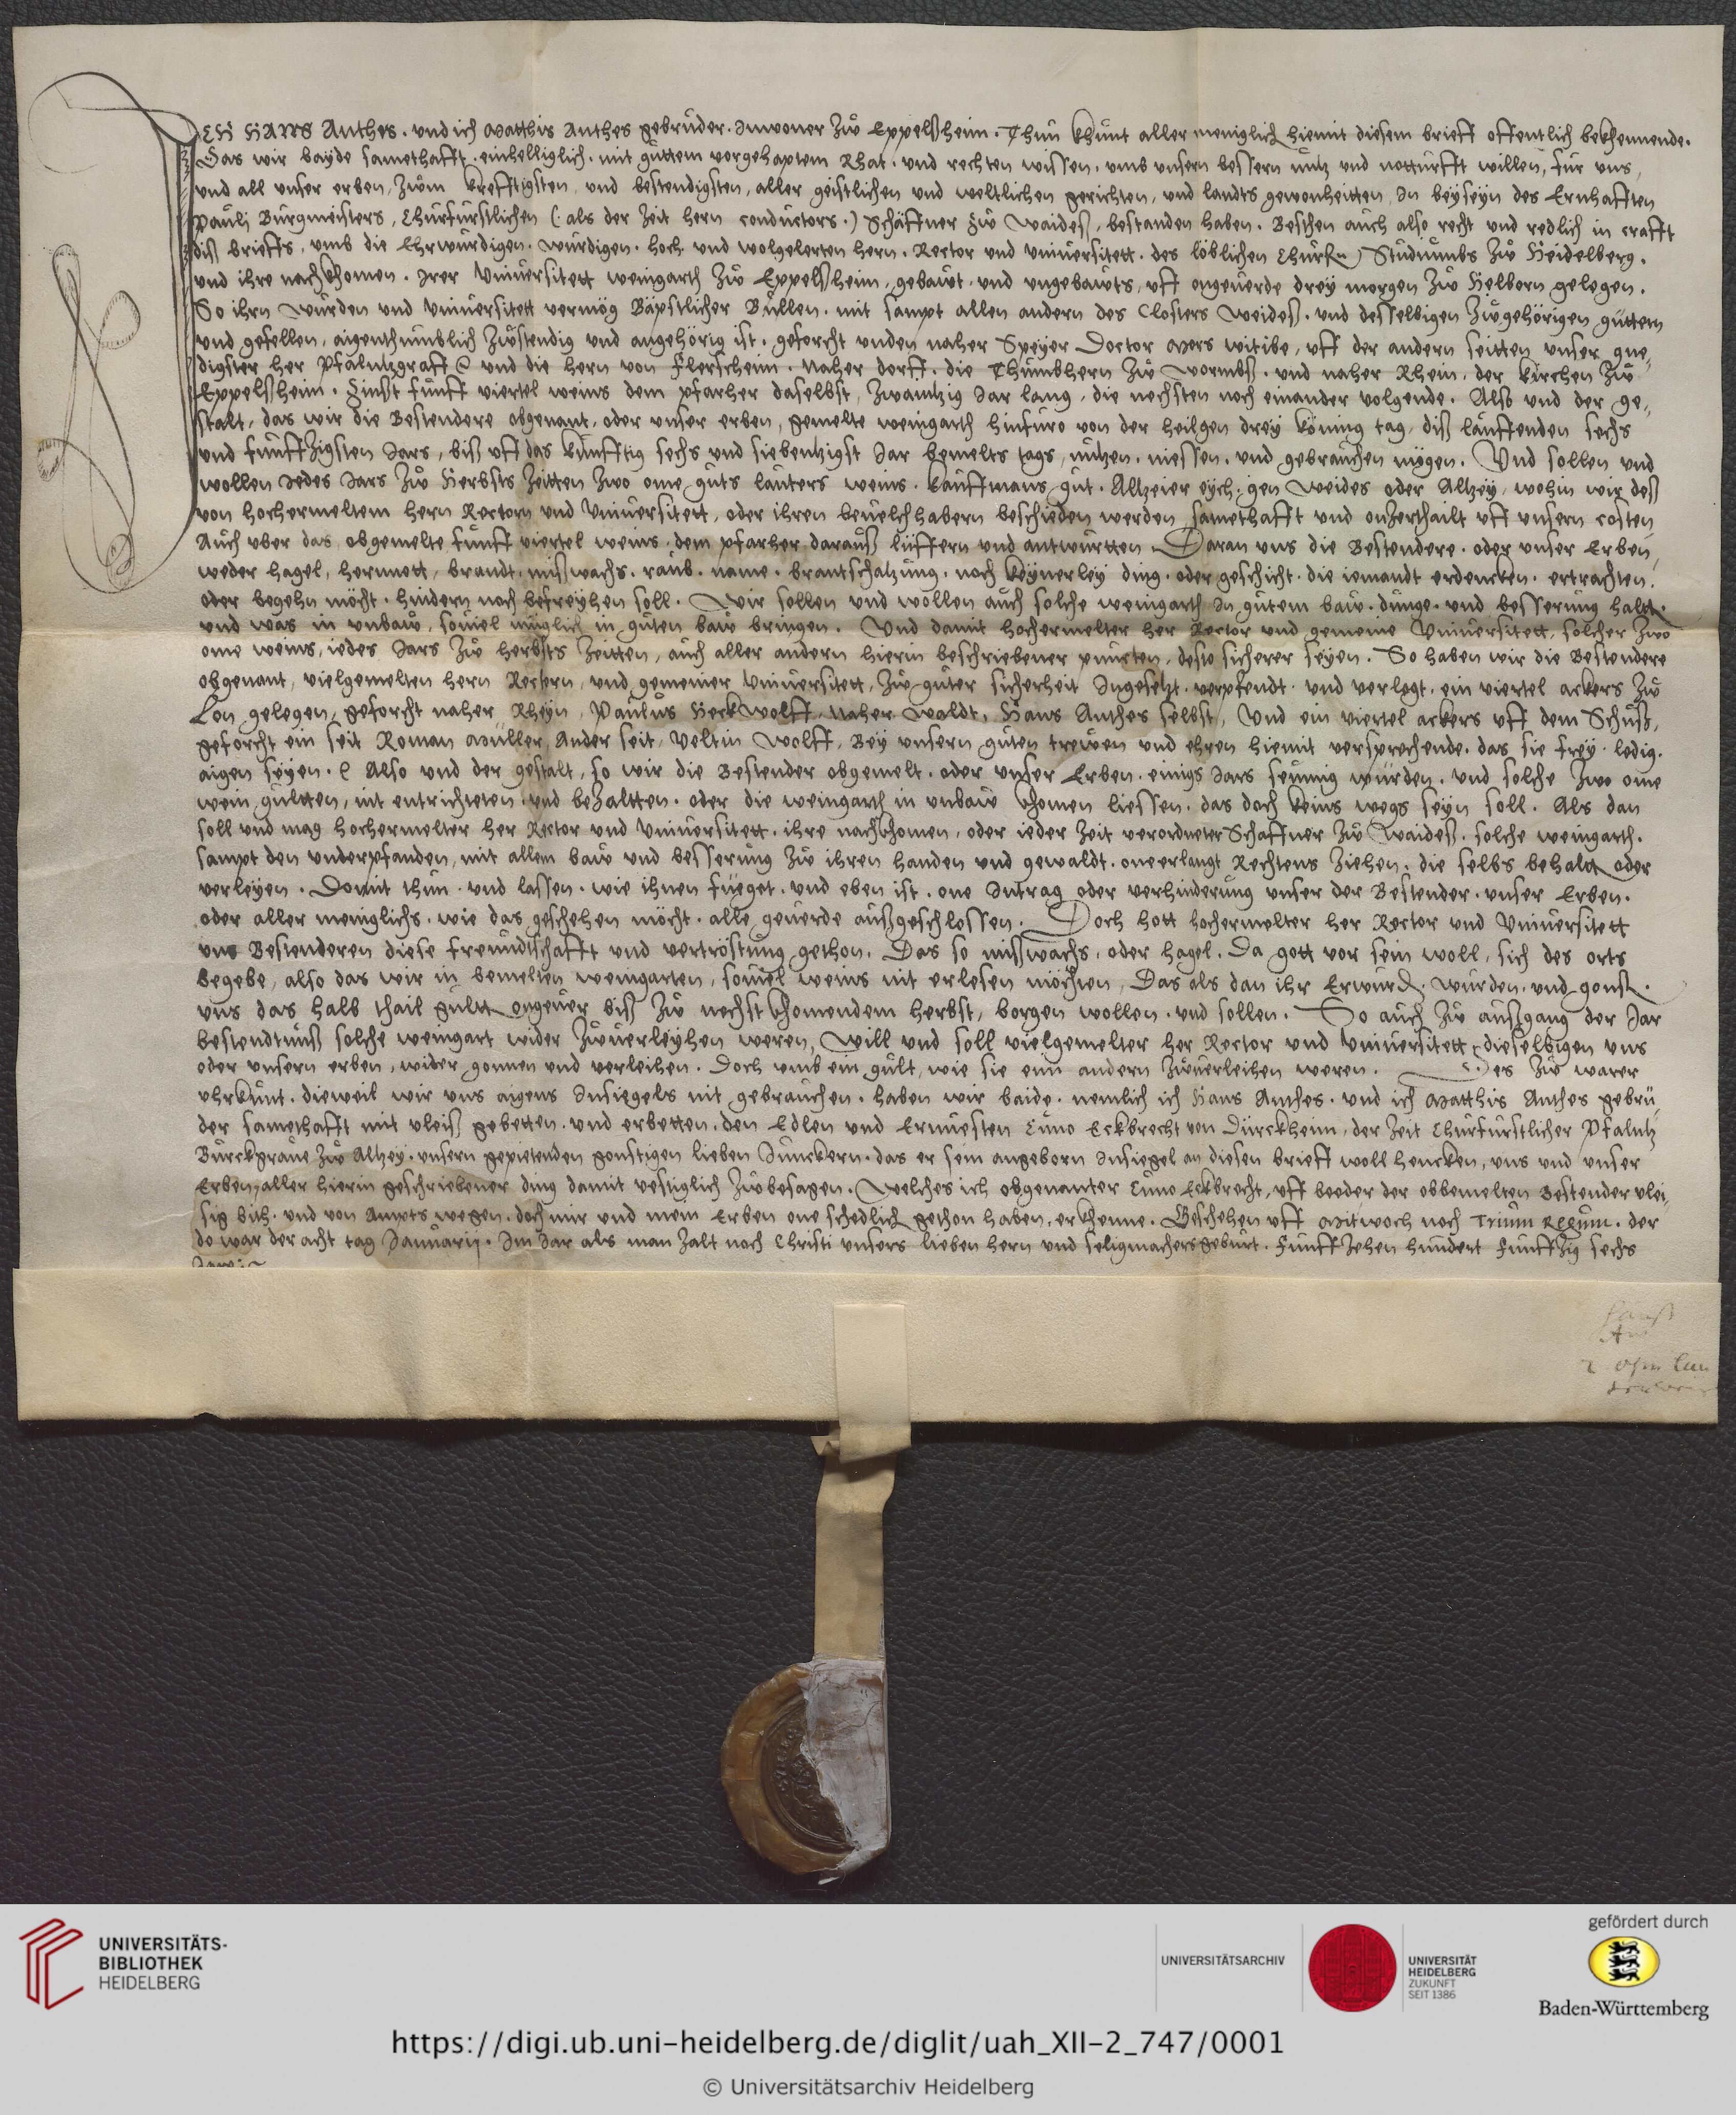 ICH HANS Anthes. und ich Matthis Anthes gebrüder. Inwoner zů Eppelßheim. Thun khunt aller meniglich hiemit diesem brieff offentlich bekhennende.
Das wir bayde samethafft. einhelliglich. mit guttem vorgehaptem Rhat. und rechten wissen, umb unsern bessern nutz und notturfft willen, für uns,
und all unser erben, zům krefftigsten und bestendigsten, aller geistlichen und weltlichen gerichten, und landts gewonheitten In beyseyn des Ernhafften
Paulj Burgmeisters, Churfurstlichen (: als der Zeit hern conductors.) Schaffner zů Waideß, bestanden haben. Bestehen auch also recht und redlich in crafft
diß brieffs, umb die Ehrwurdigen. würdigen. hoch und wolgelerten hern. Rector und Universitett. des löblichen Churfn Studiumbs zů Heidelberg.
und ihre nachkhomen. Irer Universitett weingarth zů Eppelßheim, gebawt. und ungebawts, uff ongeverde drey morgen zů Helborn gelegen.
So ihrn würden und Universitett vermög Bäpstlicher Bullen. mit sampt allen andern des Closters Weideß. und desselbigen zůgehörigen güttern
und gefellen, aigenthumblich zůstendig und angehörig ist. geforcht unden naher Speyer Doctor Mers witibe, uff der andern seitten unser gne¬
digster her Pfalntzgraff und die hern von Flerscheim. Naher dorff. die Thumbhern zů Wormbß. und naher Rhein. der kirchen zů
Eppelßheim. Zinßt funff viertel weins dem pfarher daselbst, zwantzig Jar lang, die nechsten noch einander volgende. Also und der ge¬
stalt, das wir die Bestendere obgenant, oder unser erben, gemelte weingarth hinfuro von der heilgen drey köning tag, diß lauffenden sechs
und funffzigsten Jars, biß uff das kunfftig sechs und siebentzigst Jar bemelts tags, nutzen. niessen. und gebrauchen mögen. Und sollen und
wollen Jedes Jars zů Herbsts Zeitten zwo ome guts lauters weins. kauffmans gut. Altzeier eych. gen Weides oder Altzey, wohin wir deß
von hochermeltem hern Rectorn und Universitett, oder ihren bevelchhabern beschieden werden samethafft und onzerthailt uff unsern costen
Auch uber das obgemelte funff viertel weins. dem pfarher darauß lüffern und antwurtten Daran uns die Bestendere. oder unser Erben,
weder hagel, herinett, brandt. mißwachs. raub. name. brantschatzung. noch keynerley ding. oder geschicht. die iemandt erdencken. ertrachten.
oder begehn möcht. hindern noch befreyhen soll. Wir sollen und wöllen auch solche weingarth In gutem baw. dunge. und besserung haltt.
und was in unbaw, soviel müglich in guten baw bringen. Und damit hochermelter her Rector und gemeine Universitett, solcher zwo
ome weins, iedes Jars zů herbsts Zeitten, auch aller andern hierin beschriebener puncten, desto sicherer seyen. So haben wir die Bestendere
obgenant, vielgemelten hern Rectorn, und gemeiner Universitett, zů guter sicherheit Ingesetzt. verpfendt. und verlegt. ein viertel ackers zů
Lon gelegen, geforcht naher Rheyn, Paulus Herckwolff, Naher Waldt, Hans Anthes selbst, Und ein viertel ackers uff dem Schuß,
geforcht ein seit Roman Müller, Ander seit, Veltin Wolff, Bey unsern guten trewen und ehren hiemit versprechende. das sie frey. ledig.
aigen seyen. Also und der gestalt, so wir die Bestender obgemelt. oder unser Erben. einigs Jars seumig würden. und solche zwo ome
wein gültten, nit entrichteten. und bezaltten. oder die weingarth in unbaw khomen liessen. das doch keins wegs seyn soll. Als dan
soll und mag hochermelter her Rector und Universitett. ihre nachkhomen, oder ieder Zeit verordneter Schaffner zů Waideß. solche weingarth.
sampt den underpfanden, mit allem baw und besserung zů ihren handen und gewaldt. one erlangt Rechtens ziehen. die selbs behaltt oder
verleyen. Domit thun. und lassen. wie ihnen füeget. und eben ist. one Intrag oder verhinderung unser der Bestender. unser Erben.
oder aller meniglichs. wie das geschehen möcht. alle geverde außgeschlossen. Doch hott hochermelter her Rector und Universitett
uns Bestenderen diese freundtschafft und vertröstung gethon. Das so mißwachs. oder hagel. Da gott vor sein woll, sich des orts
begebe, also das wir in bemelten weingarten, soviel weins nit erlesen möchten, Das als dan ihr Erwürd. würden. und gonst.
uns das halb thail gultt ongever biß zů nechst khomendem herbst, borgen wollen. und sollen. So auch zů außgang der Jar
bestendtnuß solche weingart wider zůverleyhen weren, Will und soll vielgemelter her Rector und Universitett dieselbigen uns
oder unsern erben, wider gonnen und verleihen. Doch umb ein gult, wie sie eim andern zůverleihen weren. Des zů warer
uhrkunt. dieweil wir uns aigens Insiegels nit gebrauchen. haben wir baide. nemlich ich Hans Anthes. und ich Matthis Anthes gebrü¬
der samethafft mit vleiß gebetten. und erbetten. den Edlen und Ernvesten Cuno Eckbrecht von Dürckheim, der Zeit Churfurstlicher Pfalntz
Burckgrave zů Altzey. unsern gepietenden gonstigen lieben Junckern. das er sein angeborn Insiegel an diesen brieff woll hencken, uns und unser
Erben, aller hierin geschriebener ding damit vestiglich zůbesagen. Welches ich obgenanter Cuno Eckbrecht, uff beeder der obbemelten Bestender vlei¬
sig bith. und von Ampts wegen. doch mir und mein Erben one schedlich gethon haben, erkhenne. Geschehen uff Mitwoch noch Trium Regum. der
do war der acht tag Januarij. Im Jar als man zalt noch Christi unsers lieben hern und seligmachers geburt. Funffzehen hundert funffzig sechs
Jar.
UNIVERSITÄTS-
BIBLIOTHEK
HEIDELBERG
UNIVERSITÄTSARCHIV
UNIVERSITÄT
HEIDELBERG
ZUKUNFT
SEIT 1386
gefördert durch
Baden-Württemberg
https://digi.ub.uni-heidelberg.de/diglit/uah_XII-2_747/0001
© Universitätsarchiv Heidelberg